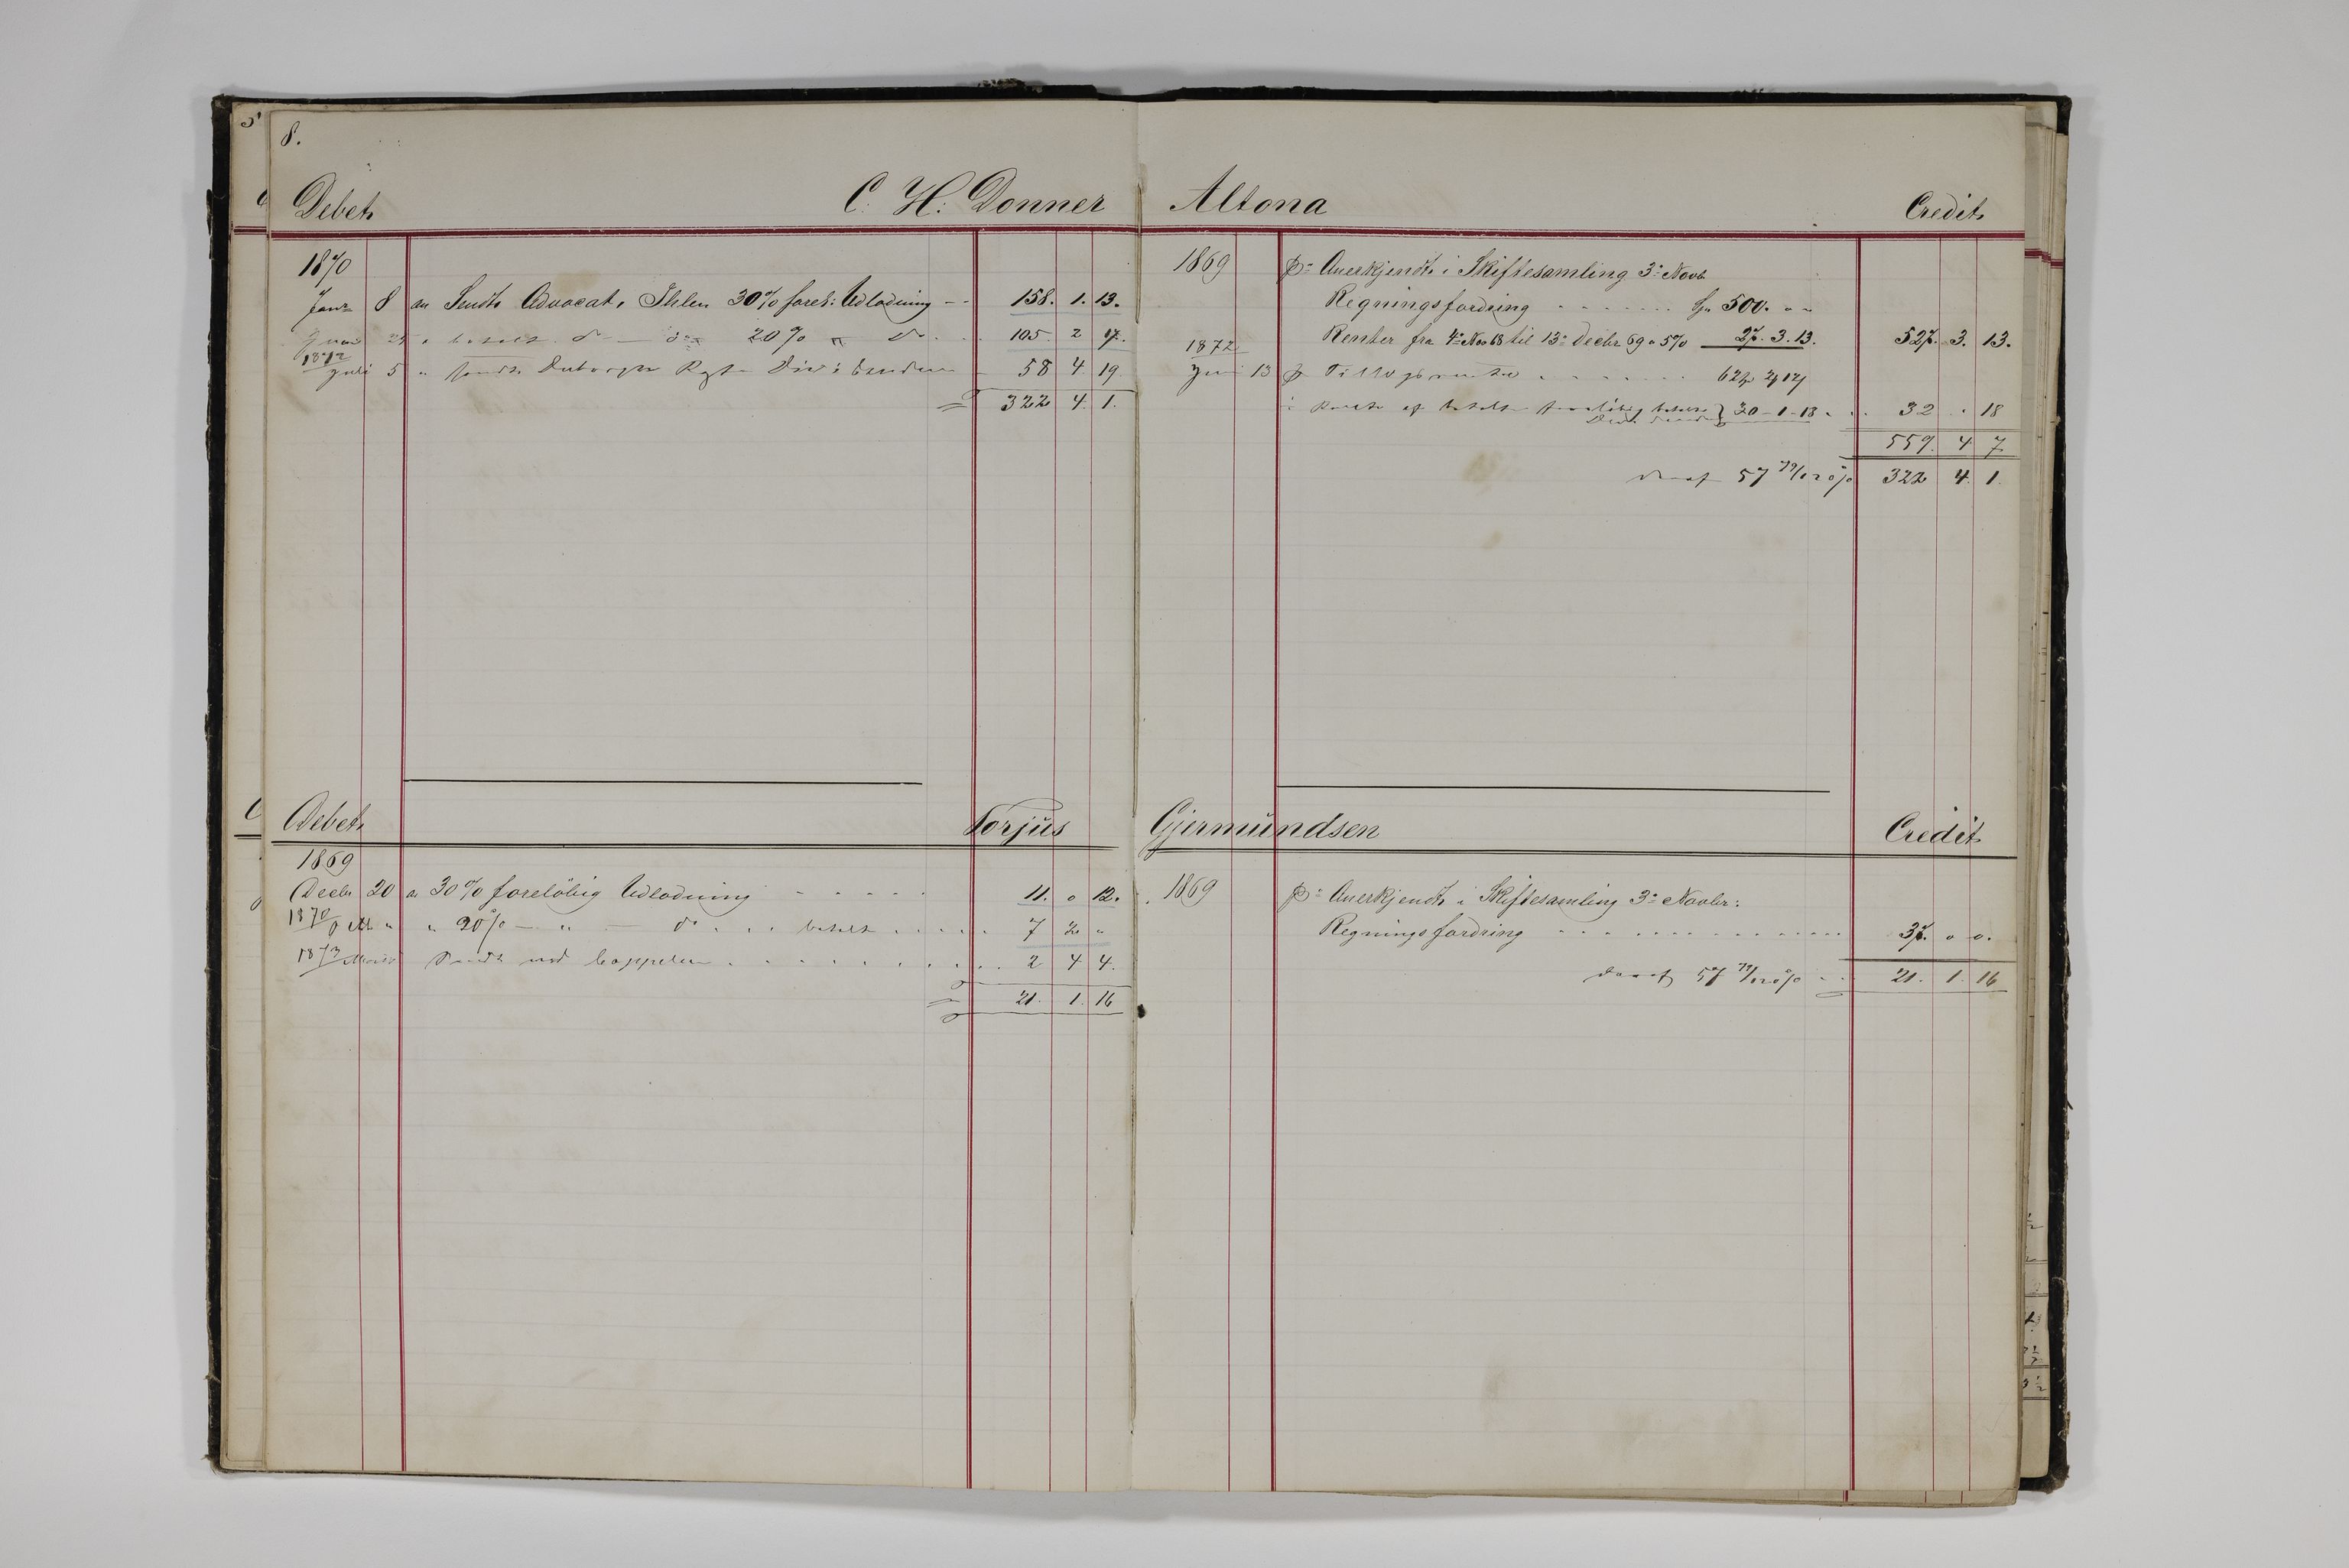 8.
Debet C. H. Donner Altona Credit
1870
Janr 8 an Sendt Advocat Ihlen 30% forel: Udlodning 158. 1. 13.
20% do 105 2 17.
1872
Juli 5 " sendt 58 4 19
322 4 1.
1869 pr Anerkjendt i Skiftesamling 3. Novb
Regningsfordring Sp 500. " "
Renter fra 4 Nov 68 til 13 Decbr 69 a 5% 27. 3. 13. 527. 3. 13.
1872
Juni 13 pr Tillægsrenter 62
30-1-18 32 " 18
559. 4 7
deraf 57 79/120 % 322 4. 1.
Debet Torjus Gjermundsen Credit
1869
Decbr 20 an 30% foreløbig Udlodning 11. 0 12.
1870
" 20% — " — do betalt 7 2 "
1873 2 4 4.
21. 1. 16
1869 pr Anerkjendt i Skiftesamling 3. Novbr:
Regningsfordring 37. 0 0.
deraf 57 79/120 % 21. 1. 16